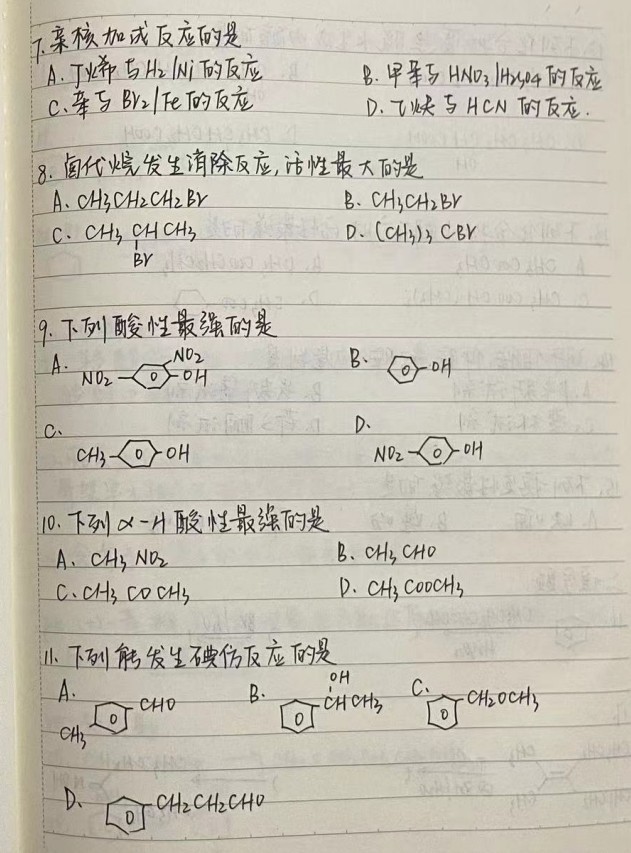 7. 亲核加成反应的是
A. 丁烯与H2/Ni的反应 B. 甲苯与HNO3/H2SO4的反应
C. 苯与Br2/Fe的反应 D. 乙炔与HCN的反应.
8. 卤代烷发生消除反应,活性最大的是
A. CH3CH2CH2Br B. CH3CH2Br
C. CH3CHCH3 D. (CH3)3CBr
Br
9. 下列酸性最强的是
A. NO2 NO2 OH B. OH
C. CH3 OH D. NO2 OH
10. 下列α-H酸性最强的是
A. CH3NO2 B. CH3CHO
C. CH3COCH3 D. CH3COOCH3
11. 下列能发生碘仿反应的是
A. CH3 CHO B. OH CHCH3 C. CH2OCH3
D. CH2CH2CHO